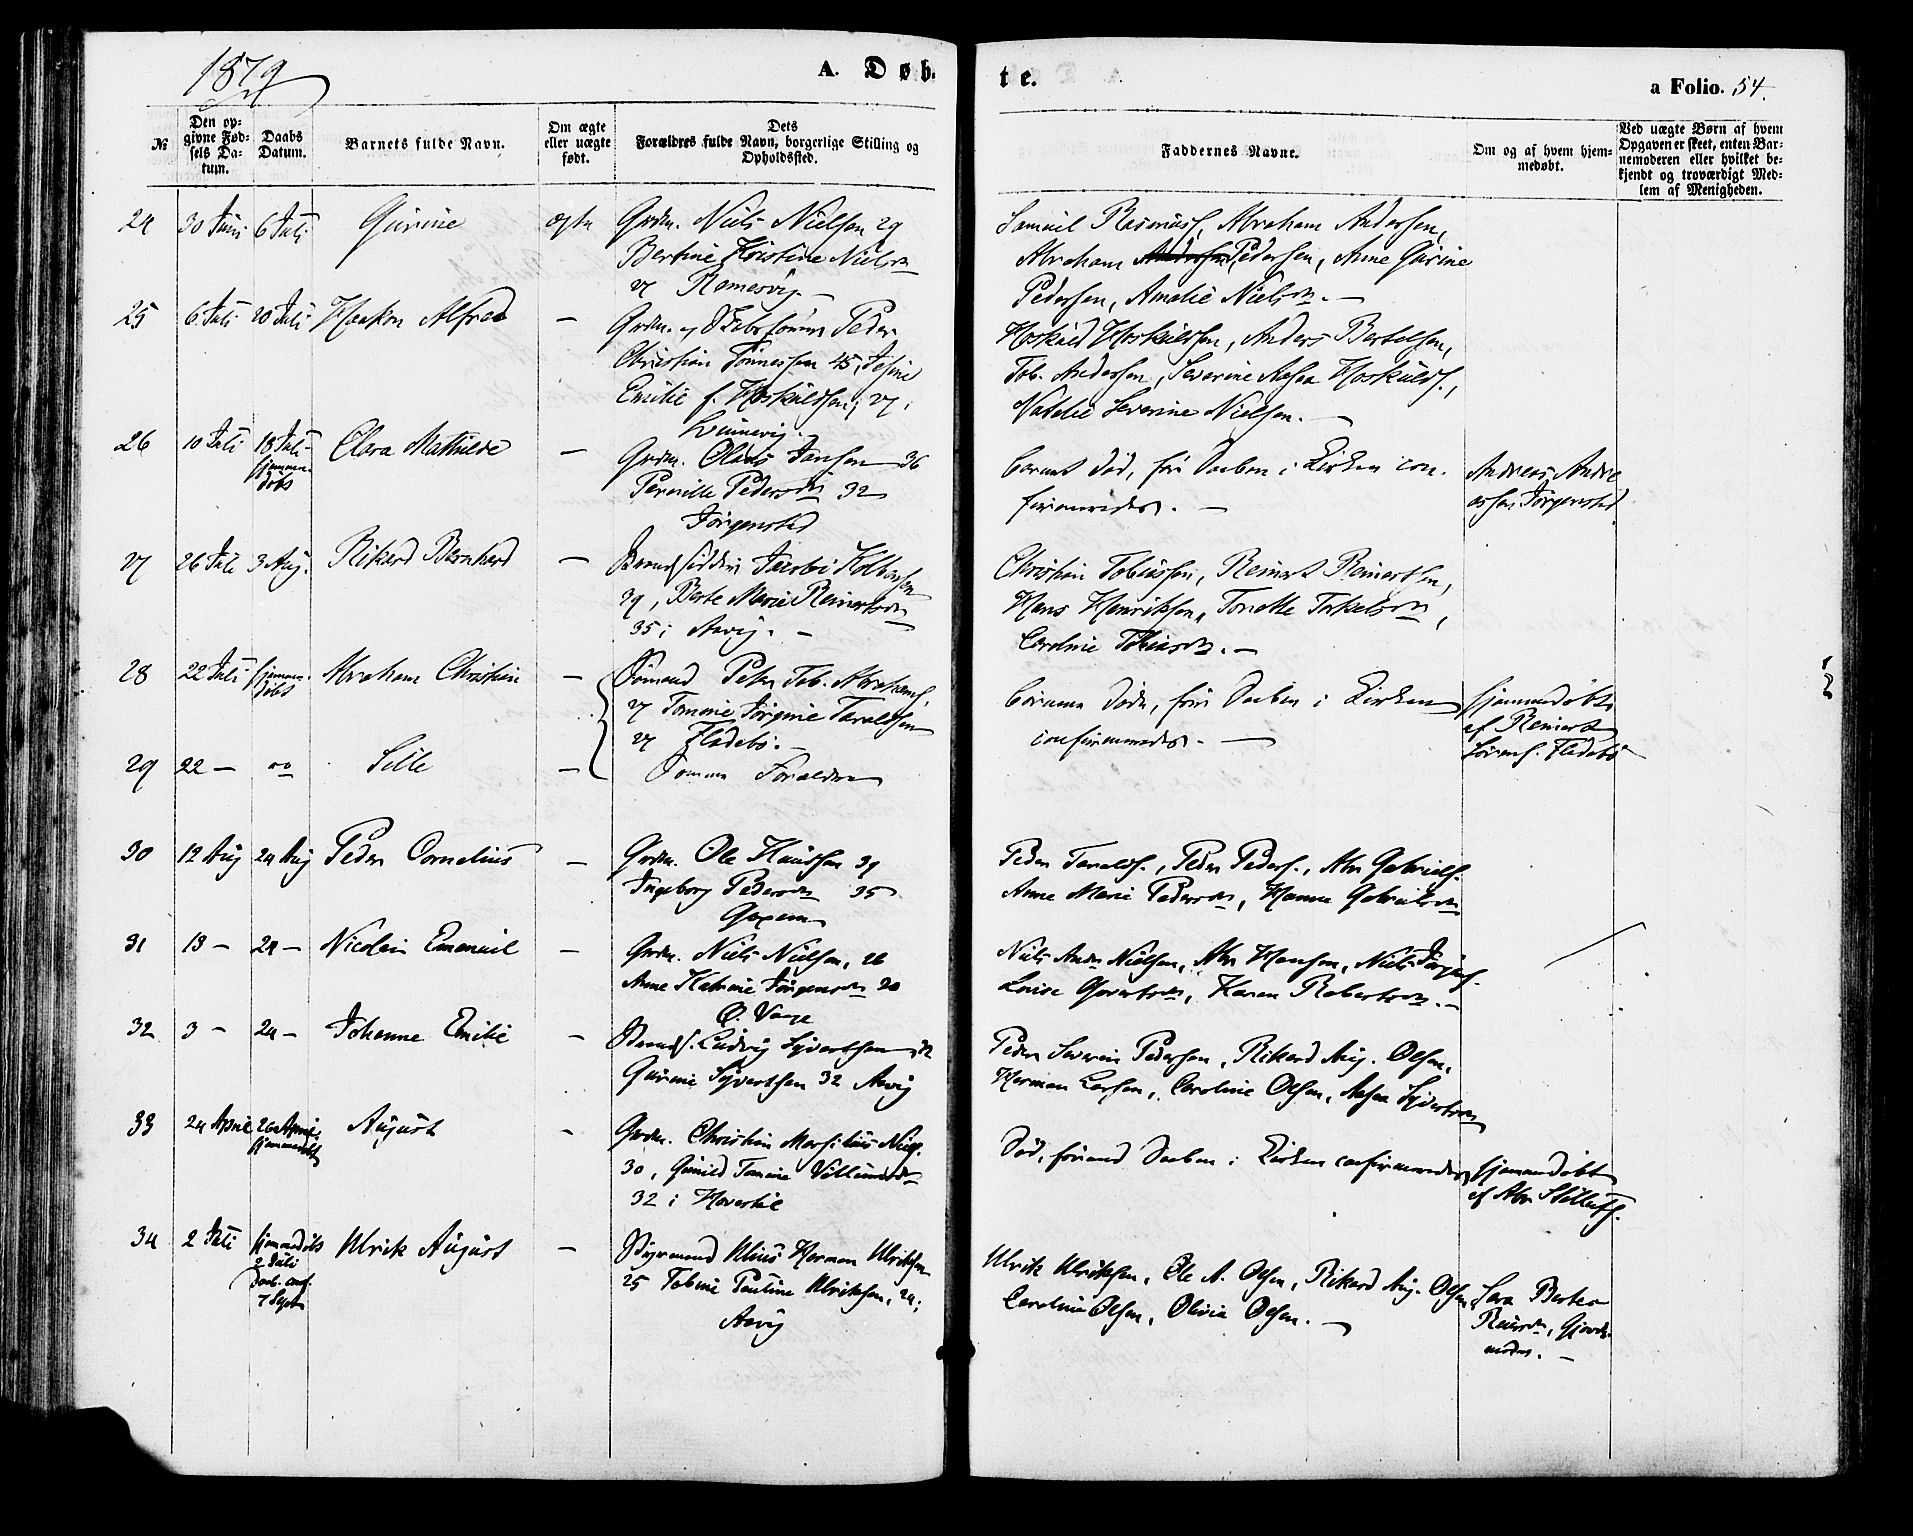 1879
A. Døb-
te.
a Folio. 54.
№
Den op-
givne Fød-
sels Da-
tum.
Daabs
Datum.
Barnets fulde Navn.
Om ægte
eller uægte
født.
Dets
Forældres fulde Navn, borgerlige Stilling og
Opholdssted.
Faddernes Navne.
Om og af hvem hjem-
medøbt.
Ved uægte Børn af hvem
Opgaven er skeet, enten Bar-
nemoderen eller hvilket be-
kjendt og troværdigt Med-
lem af Menigheden.
24 30 Juni 6 Juli Gurine ægte Grdm. Niels Nielsen 29
Bertine Kristine Nielsen
27
Samuel Rasmuss., Abraham Andersen,
Abraham Andersen Pedersen, Anne Gurine
Pedersen, Amalie Nielsen. —
25 6 Juli 20 Juli Haakon Alfred — Grdm. og Peder
Christian Tønnessen 45, Jesine
Emilie f. Hoskuldsen, 27,
Hoskuld Hoskuldsen, Anders Bertelsen,
Tob. Andersen, Severine Aasaa Hoskulds.,
Natalie Severine Nielsen. —
26 10 Juli 18 Juli hjemme-
døbt Clara Mathilde — Grdm. Olaus Jansen 36
Pernille Pedersen 32
Jørgensted
Barnet død, før Daaben i Kirken con-
firmeredes. —
Andreas Andre
assen Jørgensted
27 26 Juli 3 Aug. Rikard Bernhard — Jacob Kolbensen
39, Berte Marie Reinertsen
35 i Aavig. —
Christian Tobiassen, Reinert Reinertsen,
Hans Henriksen, Tonette Torkelsen,
Caroline Tobiasen. —
28 22 Juli hjemme-
døbt Abraham Christian — Sømand Peter Tob. Abrahams.
27 Tomine Jørgine Taraldsen
27 Fladebø. —
Børnene døde, før Daaben i Kirken
confirmeredes. —
hjemmedøbt
af Reinert
Sørens. Fladebø
29 22 — Sille — Samme Forældre
30 12 Aug 24 Aug Peder Cornelius — Grdm. Ole Knudsen 39
Ingeborg Pedersen 35
Peder Taralds., Peder Peders., Abr Gabriels.
Anne Marie Pedersen, Hanne Gabrielsen
31 13 — 24 — Nicolai Emanuel — Grdm. Niels Nielsen, 26
Anne Katrine Jørgensen 20
Ø. Vaage
Niels Andr Nielsen, Abr Hansen, Niels Jørgens.
Lovise Govertsen, Karen Robertsen. —
32 3 — 24 — Johanne Emilie — Ludvig Syvertsen
Gurine Syvertsen 32 Aavig
Peder Severin Pedersen, Rikard Aug. Olsen,
Herman Larsen, Caroline Olsen, Aasaa Syvertsen
33 24 April 26 April
hjemmedøbt August — Grdm. Christian
30, Gunild Tomine
32 i
Død, førend Daaben i Kirken confirmeredes
hjemmedøbt
af Abr
34 2 Juli hjemmedøbt
2 Juli
Daab. conf.
7 Septr Ulrik August — Styrmand Herman Ulriksen
25 Tobine Pauline Ulriksen, 24;
Aavig
Ulrik Ulriksen, Ole A. Olsen, Rikard Aug. Olsen,
Caroline Olsen, Olivia Olsen. —
Sara Bertea
Gjorde-
moder. —